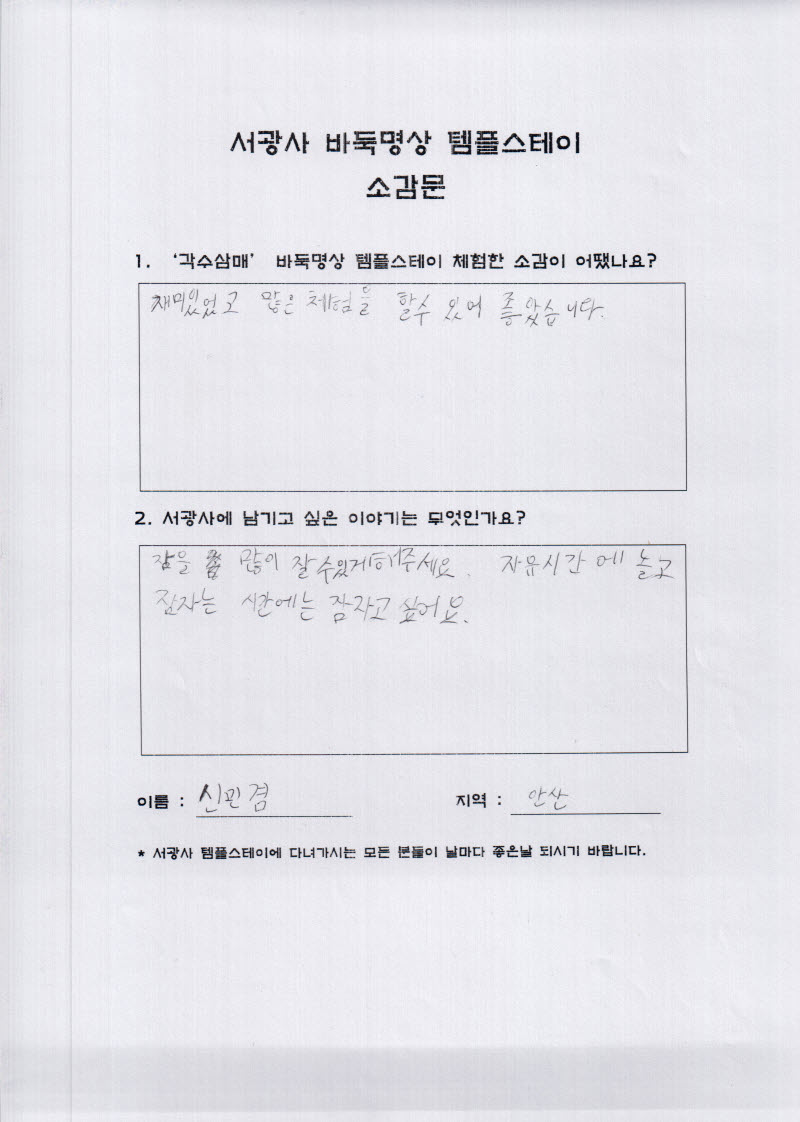 서광사 바둑명상 템플스테이
소감문
1. ‘각수삼매’ 바둑명상 템플스테이 체험한 소감이 어땠나요?
재미있었고 많은 체험을 할수 있어 좋았습니다.
2. 서광사에 남기고 싶은 이야기는 무엇인가요?
잠을 많이 잘 수있게해주세요. 자유시간에 놀고
잠자는 시간에는 잠자고 싶어요.
이름 : 신민겸
지역 : 안산
* 서광사 템플스테이에 다녀가시는 모든 분들이 날마다 좋은날 되시기 바랍니다.